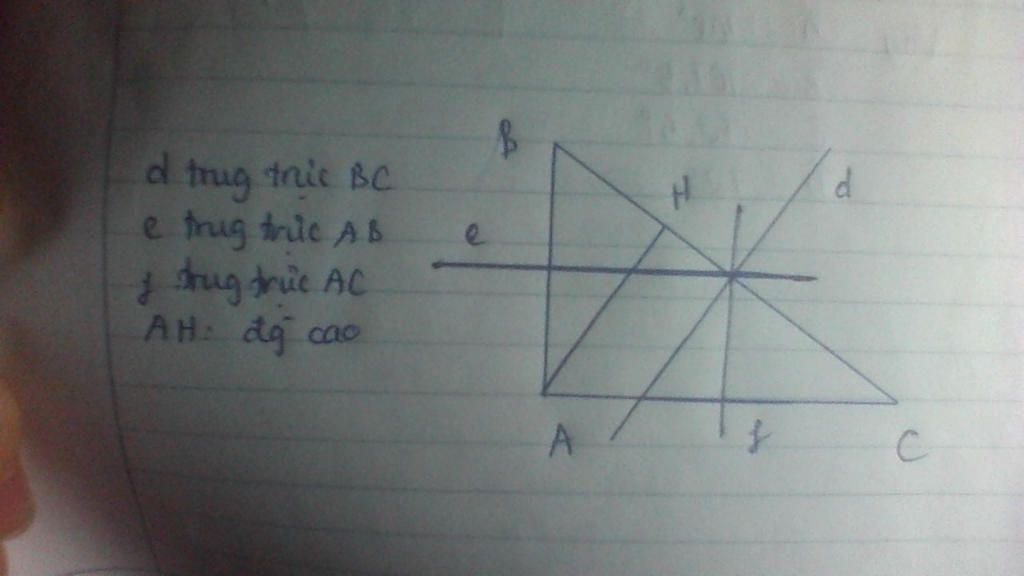 d trug trực BC
e trug trực AB
f trug trực AC
AH: đg cao
B
H
d
e
A
f
C